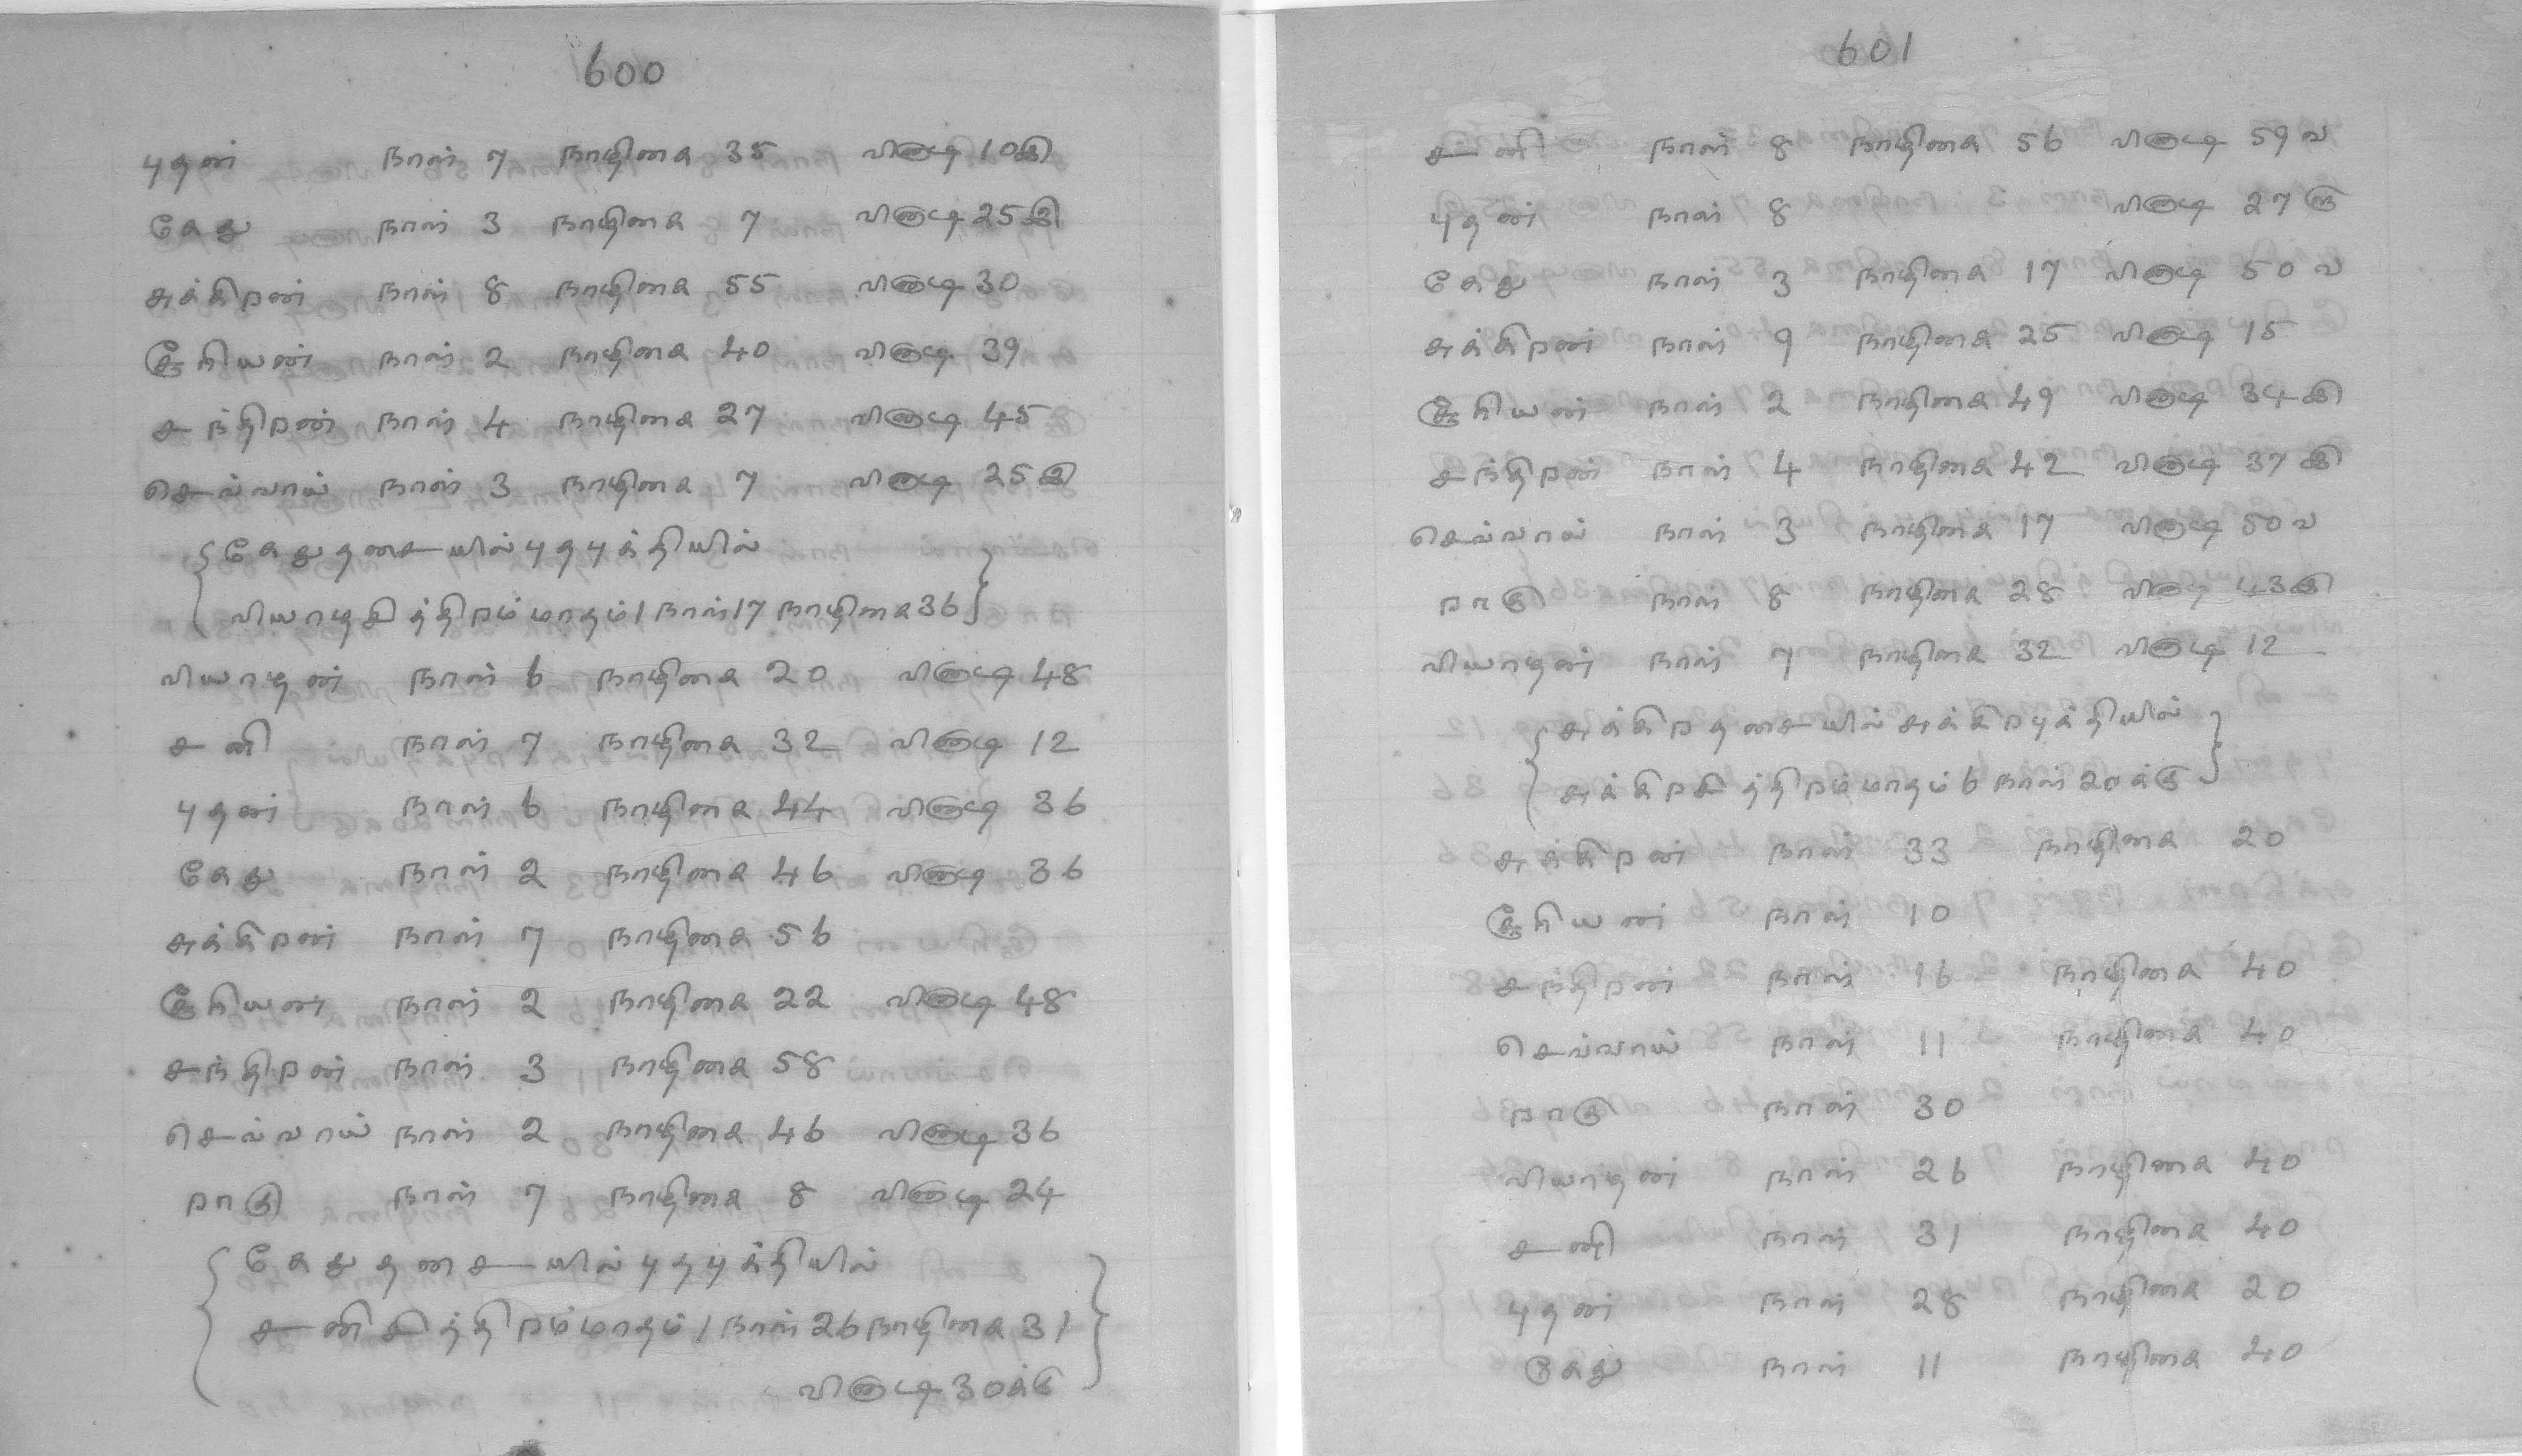 600
புதன் நாள் 7 நாழிகை 35 விநாடி 10இ
கேது நாள் 3 நாழிகை 7 விநாடி 25இ
சுக்கிறன் நாள் 8 நாழிகை 55 விநாடி 30
சூரியன் நாள் 2 நாழிகை 40 விநாடி 39
சந்திறன் நாள் 4 நாழிகை 27 விநாடி 45
செவ்வாய் நாள் 3 நாழிகை 7 விநாடி 25இ
கேது தசையில் புத புக்தியில்
வியாழ சித்திறம் மாதம் 1 நாள் 17 நாழிகை 36
வியாழன் நாள் 6 நாழிகை 20 விநாடி 48
சனி நாள் 7 நாழிகை 32 விநாடி 12
புதன் நாள் 6 நாழிகை 44 விநாடி 36
கேது நாள் 2 நாழிகை 46 விநாடி 36
சுக்கிறன் நாள் 7 நாழிகை 56
சூரியன் நாள் 2 நாழிகை 22 விநாடி 48
சந்திறன் நாள் 3 நாழிகை 58
செவ்வாய் நாள் 2 நாழிகை 46 விநாடி 36
றாகு நாள் 7 நாழிகை 8 விநாடி 24
கேது தசையில் புத புக்தியில்
சனி சித்திறம் மாதம் 1 நாள் 26 நாழிகை 31
விநாடி 30க்கு
601
சனி நாள் 8 நாழிகை 56 விநாடி 59வ
புதன் நாள் 8 விநாடி 27
கேது நாள் 3 நாழிகை 17 விநாடி 50வ
சுக்கிறன் நாள் 9 நாழிகை 25 விநாடி 15
சூரியன் நாள் 2 நாழிகை 49 விநாடி 34இ
சந்திறன் நாள் 4 நாழிகை 42 விநாடி 37இ
செவ்வாய் நாள் 3 நாழிகை 17 விநாடி 50வ
றாகு நாள் 8 நாழிகை 28 விநாடி 43இ
வியாழன் நாள் 7 நாழிகை 32 விநாடி 12
சுக்கிற தசையில் சுக்கிற புக்தியில்
சுக்கிற சித்திறம் மாதம் 6 நாள் 20க்கு
சுக்கிறன் நாள் 33 நாழிகை 20
சூரியன் நாள் 10
சந்திறன் நாள் 16 நாழிகை 40
செவ்வாய் நாள் 11 நாழிகை 40
றாகு நாள் 30
வியாழன் நாள் 26 நாழிகை 40
சனி நாள் 31 நாழிகை 40
புதன் நாள் 28 நாழிகை 20
கேது நாள் 11 நாழிகை 40